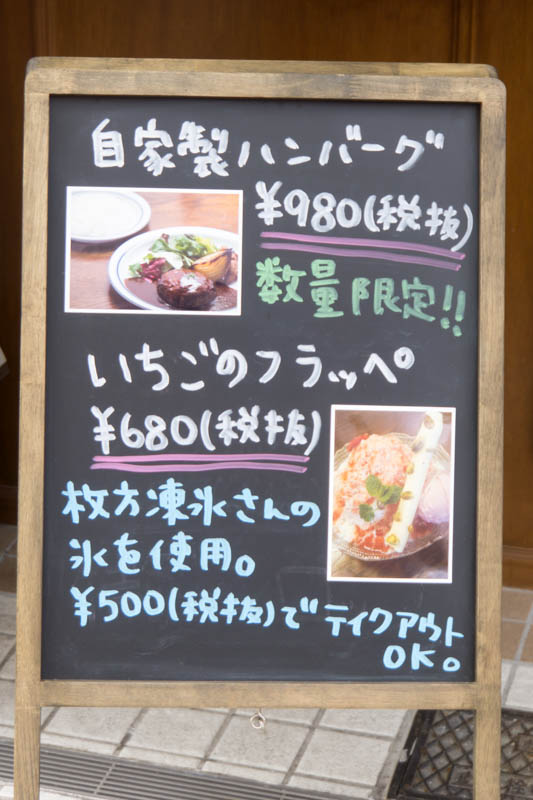 自家製ハンバーグ
¥980(税抜)
数量限定!!
いちごのフラッペ。
¥680(税抜)
枚方凍氷さんの
氷を使用。
¥500(税抜)でテイクアウト
OK。